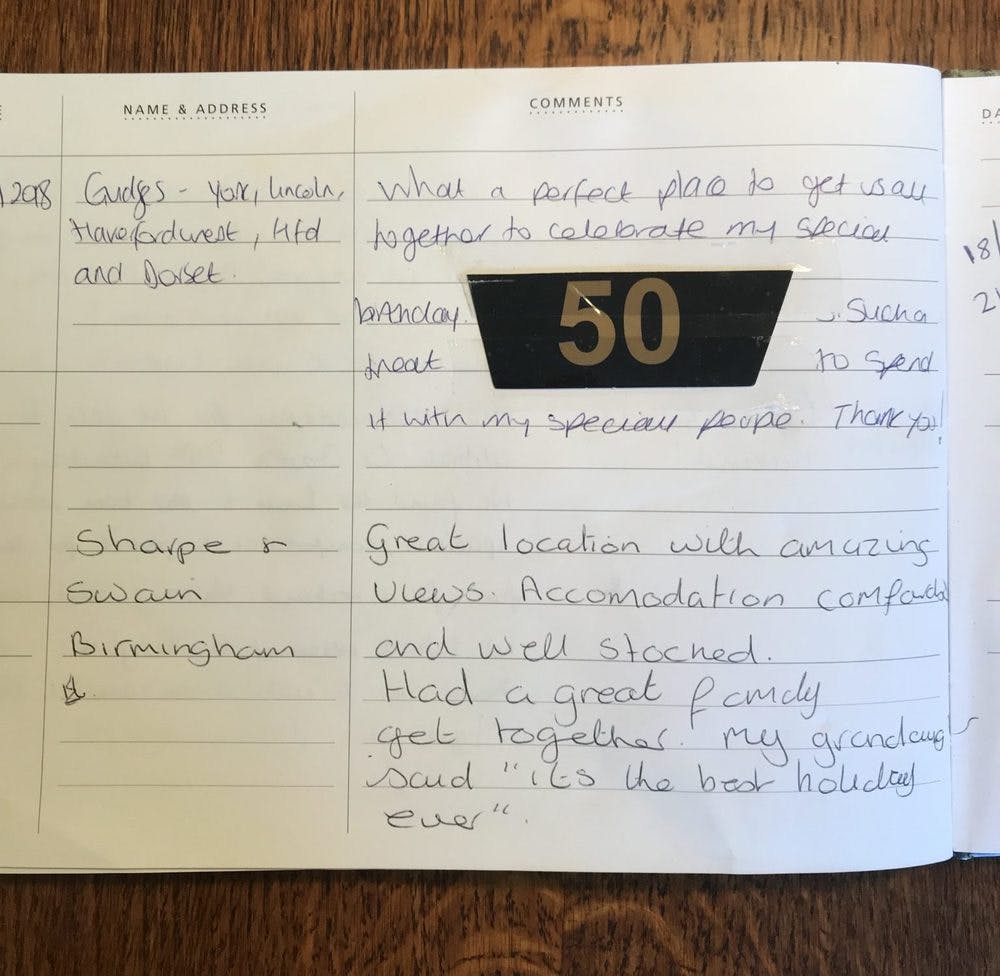 NAME & ADDRESS
COMMENTS
Gudges - York, Lincoln,
Haverfordwest, Hfd
and Dorset.
What a perfect place to get us all
together to celebrate my special
birthday. 50 Such a
treat to spend
it with my special people. Thank you!
Sharpe &
Swain
Birmingham
Great location with amazing
views. Accomodation comfortable
and well stocked.
Had a great family
get together. My grandaughter
said "its the best holiday
ever".
DA
18/
2